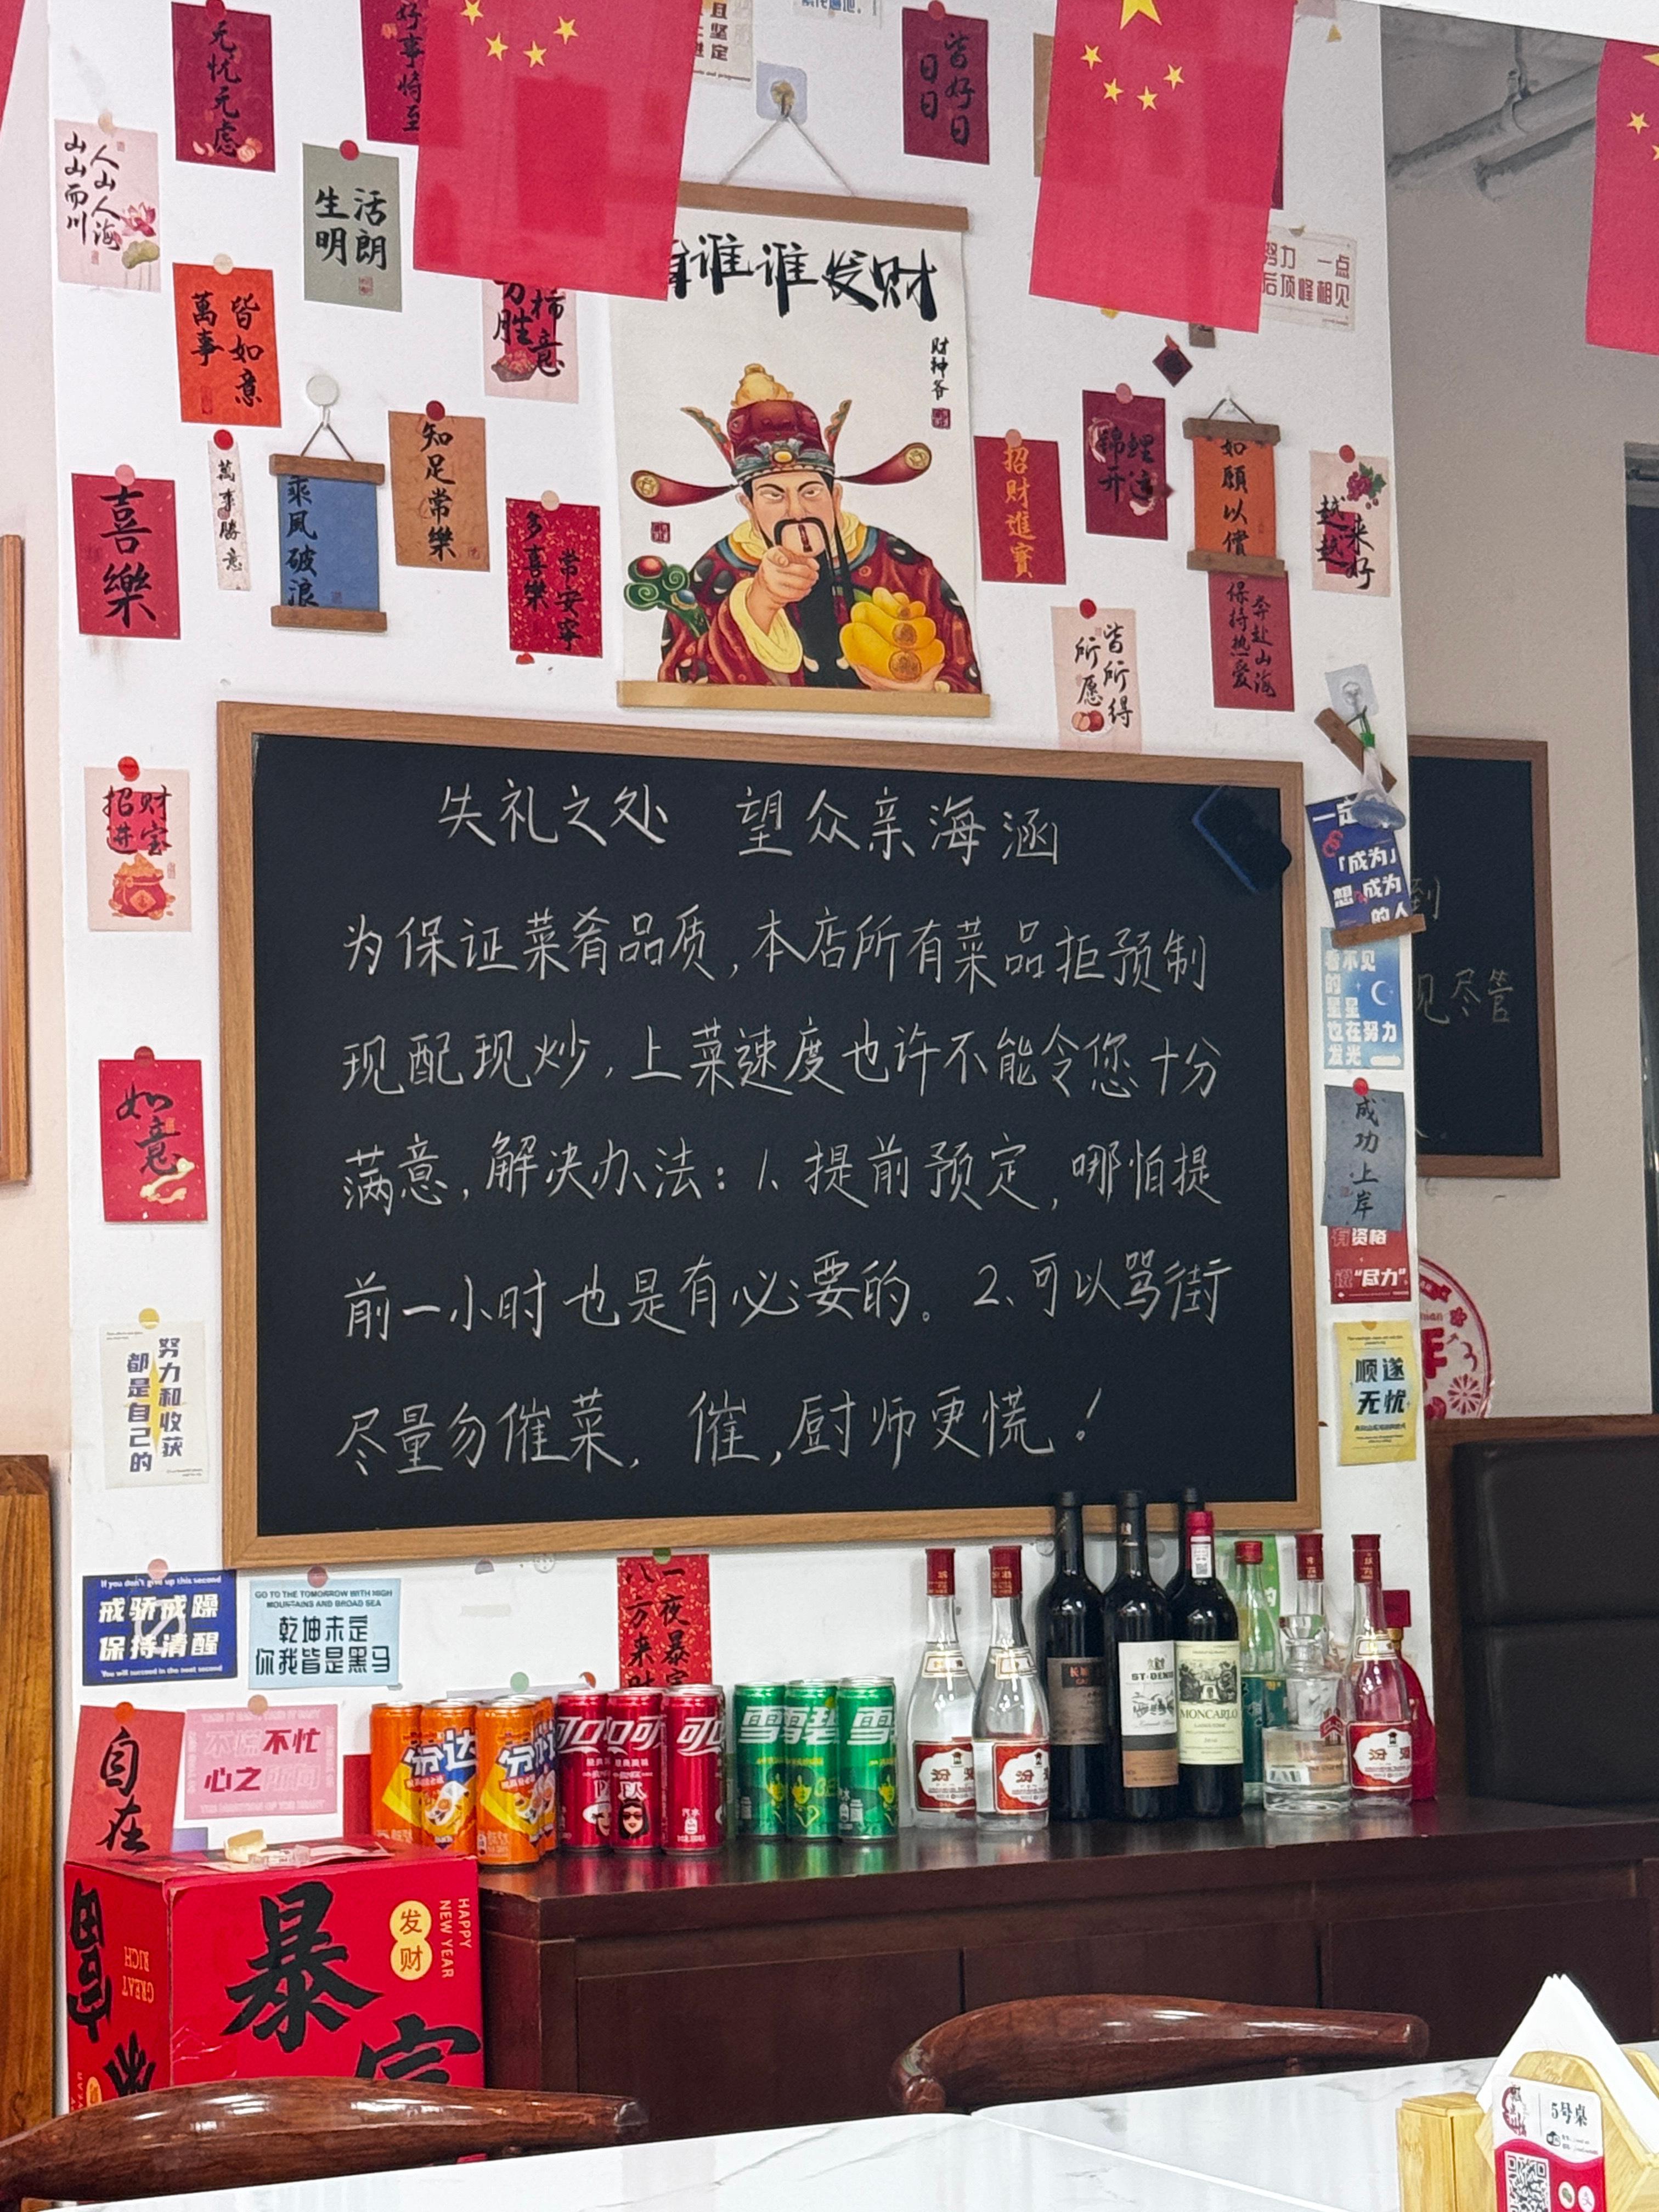 无忧无虑
好事将至
且坚定
皆好日
日日
人山人海
山山而川
活朗
生明
谁谁发财
财神爷
努力 一点
后顶峰相见
皆如意
萬事
柿意
万胜
知足常樂
萬事勝意
乘风破浪
喜樂
常安寧
多喜樂
招财進寶
锦鲤
如願以償
越来
越好
保持热爱
奔赴山海
皆所得
所愿
招财
进宝
一定
「成为」
想成为
的人
看不见
的星星
也在努力
发光
失礼之处 望众亲海涵
为保证菜肴品质,本店所有菜品拒预制
现配现炒,上菜速度也许不能令您十分
满意,解决办法:1、提前预定,哪怕提
前一小时也是有必要的。2、可以骂街
尽量勿催菜, 催,厨师更慌!
到
见尽管
如意
成功上岸
有资格
说“尽力”
努力和收获
都是自己的
顺遂
无忧
If you don't give up this second
戒骄戒躁
保持清醒
You will succeed in the next second
GO TO THE TOMORROW WITH HIGH
MOUNTAINS AND BROAD SEA
乾坤未定
你我皆是黑马
一夜暴富
八方来财
自在
不慌不忙
心之所向
芬达
芬达
可口可
可口
雪碧
雪碧
雪
汾
汾
ST·DENIS
MONCARLO
汾酒
暴富
发财
HAPPY
NEW YEAR
GREAT
RICH
5号桌